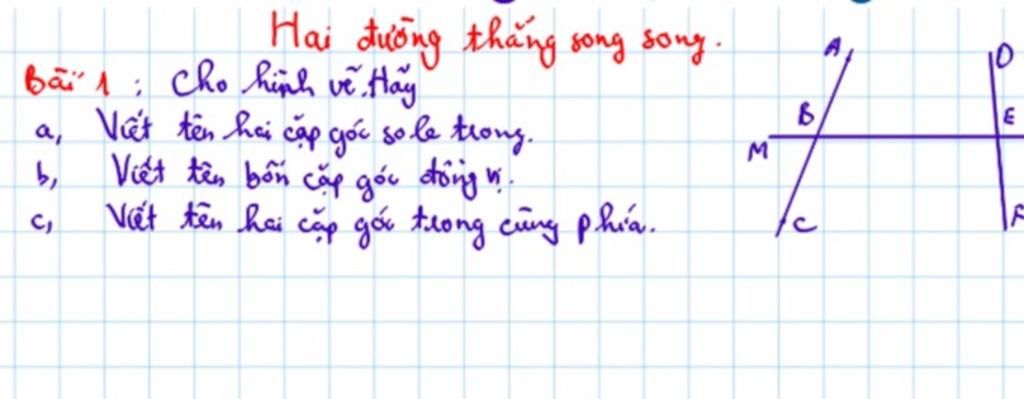 Hai đường thẳng song song.
Bài 1 : Cho hình vẽ. Hãy
a, Viết tên hai cặp góc so le trong.
b, Viết tên bốn cặp góc đồng vị.
c, Viết tên hai cặp góc trong cùng phía.
A
D
B
E
M
C